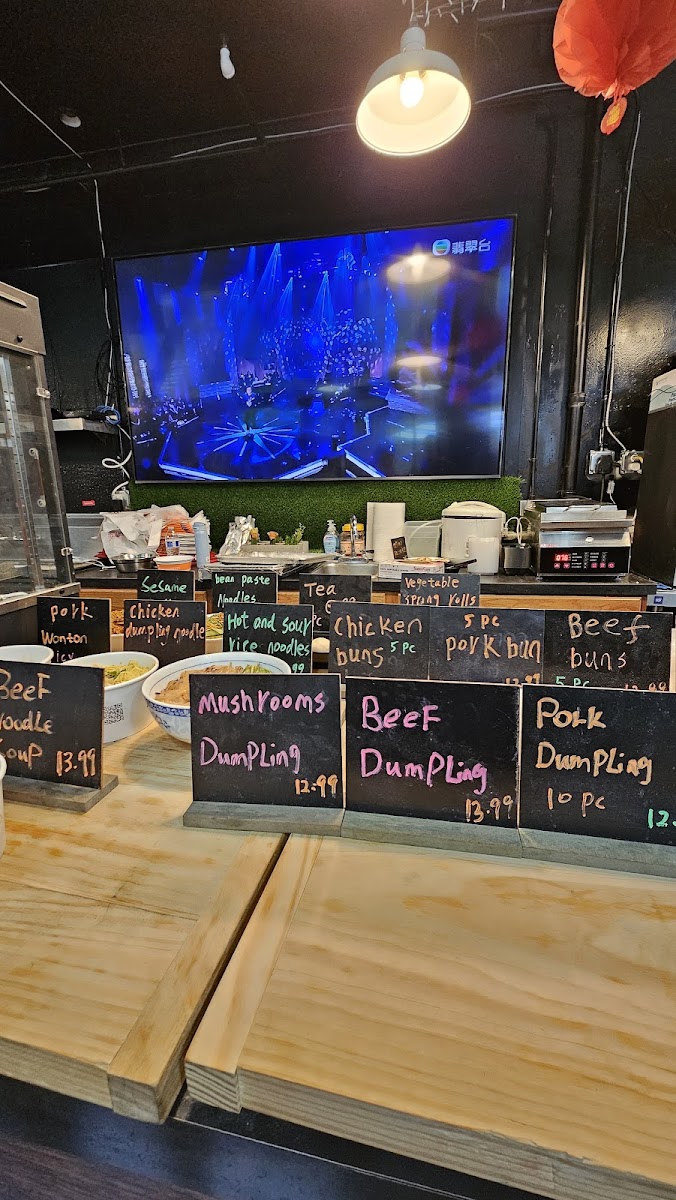 翡翠台
Sesame
bean paste
Noodles
Tea
Vegetable
spring rolls
Pork
Wonton
Chicken
dumpling noodle
Hot and sour
rice noodles
Chicken
buns 5 pc
5 PC
pork bun
Beef
buns
5 PC
Beef
Noodle
Soup
13.99
Mushrooms
Dumpling
12.99
Beef
Dumpling
13.99
Pork
Dumpling
10 pc
12.